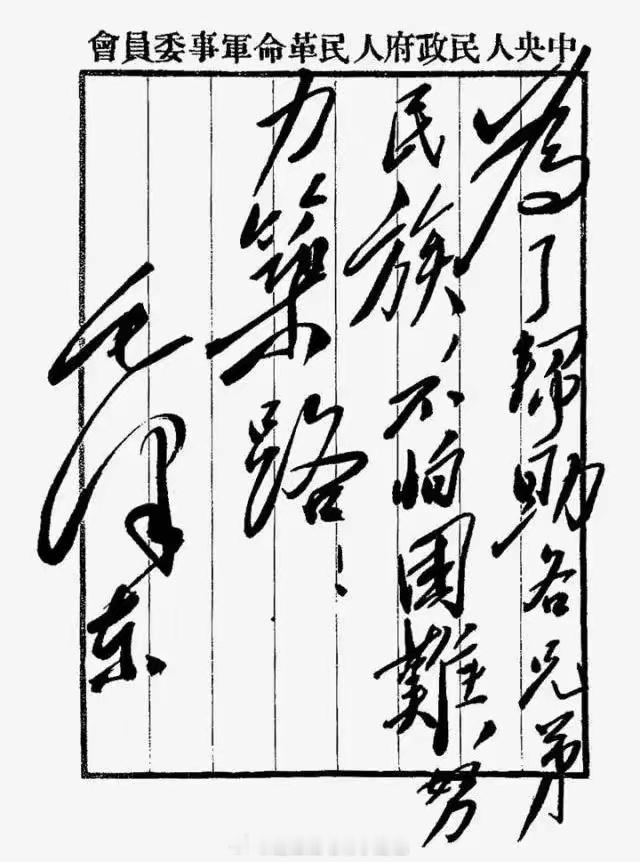 中央人民政府人民革命軍事委員會
為了幫助各兄弟
民族，不怕困難，努
力築路！
毛澤東